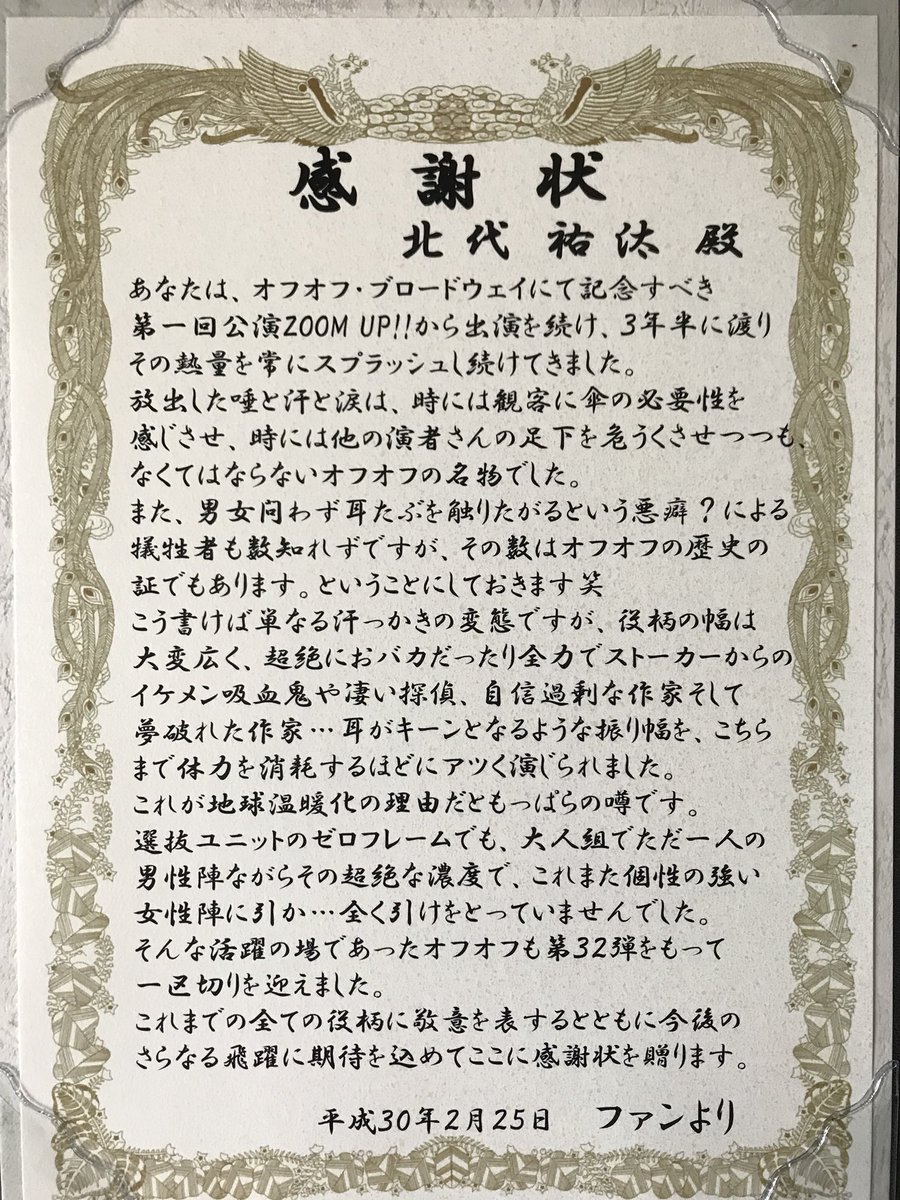 感謝状
北代 祐汰 殿
あなたは、オフオフ・ブロードウェイにて記念すべき
第一回公演ZOOM UP!!から出演を続け、3年半に渡り
その熱量を常にスプラッシュし続けてきました。
放出した唾と汗と涙は、時には観客に傘の必要性を
感じさせ、時には他の演者さんの足下を危うくさせつつも、
なくてはならないオフオフの名物でした。
また、男女問わず耳たぶを触りたがるという悪癖？による
犠牲者も数知れずですが、その数はオフオフの歴史の
証でもあります。ということにしておきます笑
こう書けば単なる汗っかきの変態ですが、役柄の幅は
大変広く、超絶におバカだったり全力でストーカーからの
イケメン吸血鬼や凄い探偵、自信過剰な作家そして
夢破れた作家…耳がキーンとなるような振り幅を、こちら
まで体力を消耗するほどにアツく演じられました。
これが地球温暖化の理由だともっぱらの噂です。
選抜ユニットのゼロフレームでも、大人組でただ一人の
男性陣ながらその超絶な濃度で、これまた個性の強い
女性陣に引か…全く引けをとっていませんでした。
そんな活躍の場であったオフオフも第32弾をもって
一区切りを迎えました。
これまでの全ての役柄に敬意を表するとともに今後の
さらなる飛躍に期待を込めてここに感謝状を贈ります。
平成30年2月25日 ファンより